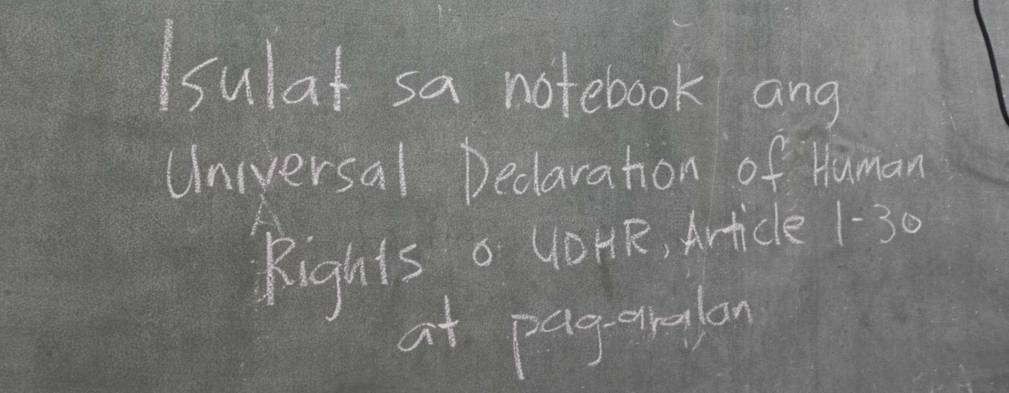 Isulat sa notebook ang
Universal Declaration of Human
Rights o UDHR, Article 1-30
at pag-aralan